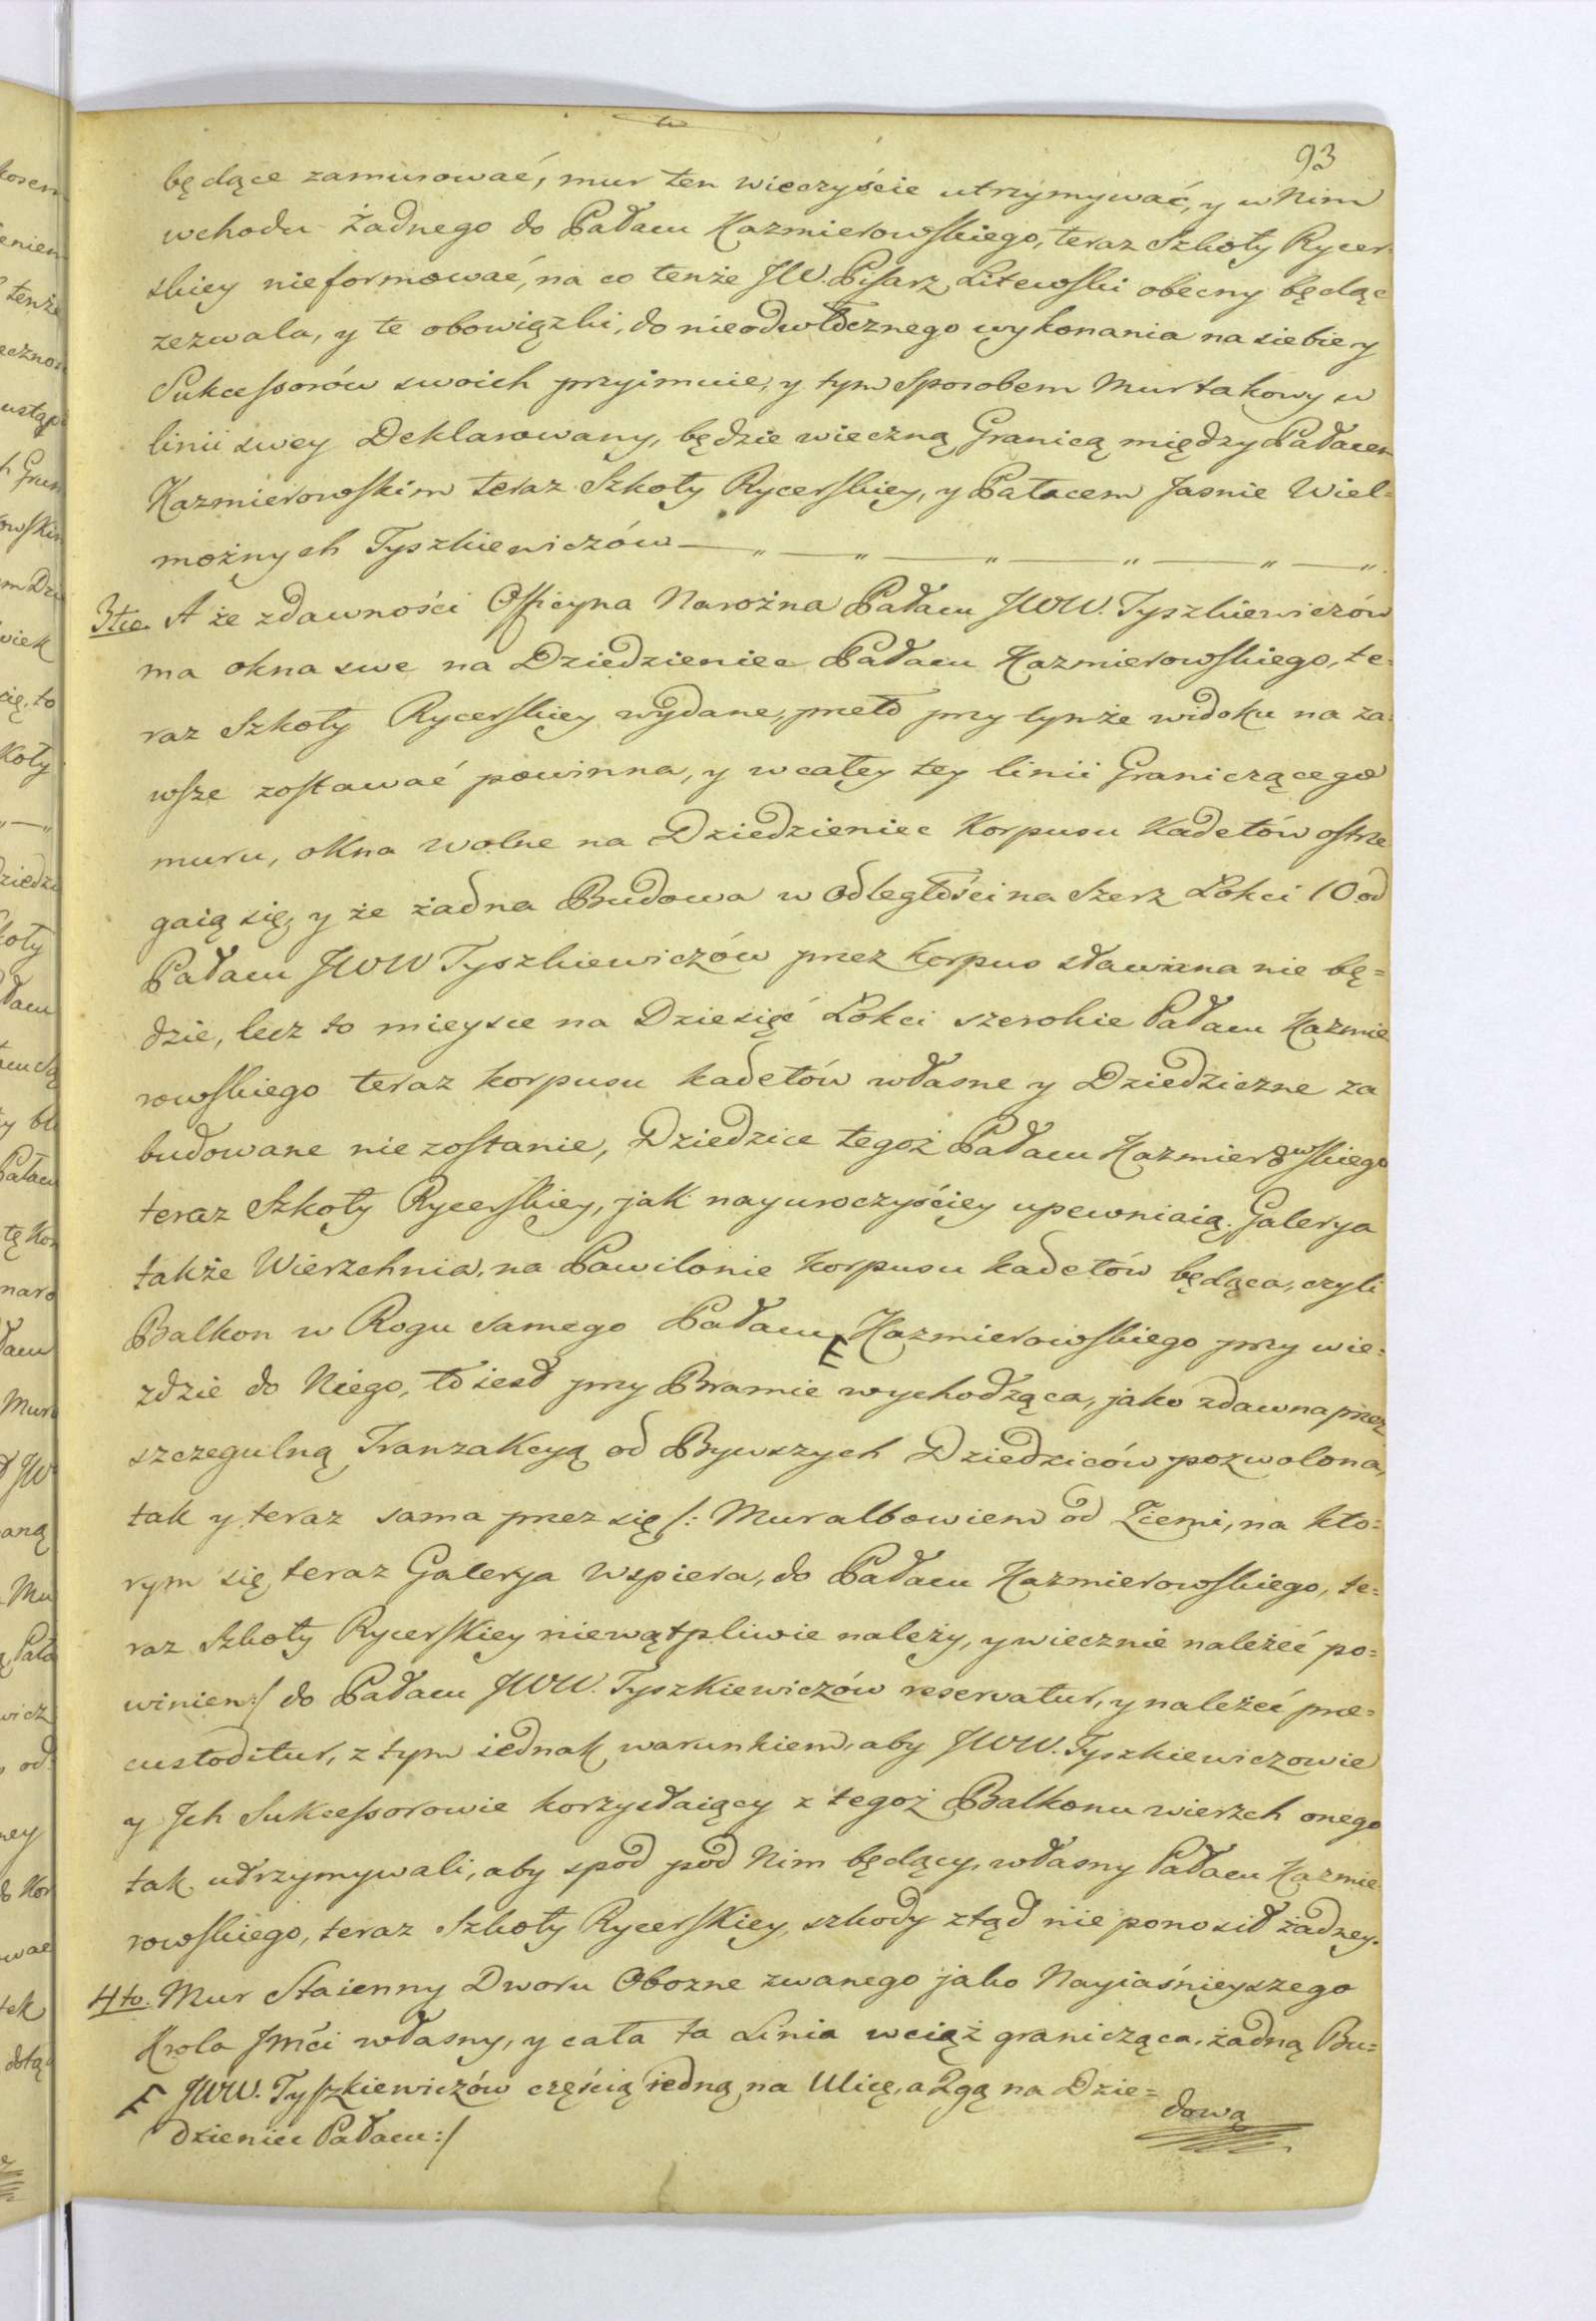 93
będące zamurować, mur ten wieczyście utrzymywać, y w Nim
wchodu żadnego do Pałacu Kazmierowskiego, teraz Szkoły Rycer-
skiey nieformować, na co tenże JW. Pisarz Litewski obecny będąc
zezwala, y te obowiązki, do nieodwłocznego wykonania na siebie y
Sukcessorów swoich przyimuie, y tym sposobem Mur takowy w
linii swey Deklarowany, będzie wieczną Granicą między Pałacem
Kazmierowskim teraz Szkoły Rycerskiey, y Pałacem Jasnie Wiel=
możnych Tyszkiewiczów — „ — „ — „ — „ — „ — „.
3tio. A że zdawności Officyna Narożna Pałacu JWW. Tyszkiewiczów
ma okna swe na Dziedzieniec Pałacu Kazmierowskiego, te=
raz Szkoły Rycerskiey wydane, przeto przy tymże widoku na za=
wsze zostawać powinna, y w całey tey linii Graniczącego
muru, okna wolne na Dziedzieniec Korpusu Kadetów ostrze
gaią się, y że żadna Budowa w odległości na Szerz Łokci 10 od
Pałacu JWW Tyszkiewiczów przez Korpus stawiana nie bę=
dzie, lecz to mieysce na Dziesięć Łokci szerokie Pałacu Kazmie
rowskiego teraz korpusu kadetów własne y Dziedziczne za
budowane nie zostanie, Dziedzice tegoż Pałacu Kazmierowskiego
teraz Szkoły Rycerskiey, jak nayuroczyściey upewniaią. Galerya
także Wierzchnia, na Pawilonie korpusu kadetów będąca, czyli
Balkon w Rogu samego Pałacu E Kazmierowskiego przy wie=
zdzie do Niego, to iest przy Bramie wychodząca, jako zdawna przez
szczegulną Tranzakcyą od Bywszych Dziedziców pozwolona,
tak y teraz sama przez się /: Mur albowiem od Ziemi, na kto=
rym się teraz Galerya wspiera, do Pałacu Kazmierowskiego, te=
raz Szkoły Rycerskiey niewątpliwie należy, y wiecznie należeć po=
winien :/ do Pałacu JWW. Tyszkiewiczów reservatur, y należeć præ=
custoditur, z tym iednak warunkiem, aby JWW. Tyszkiewiczowie
y Jch Sukcessorowie korzystaiący z tegoż Balkonu wierzch onego
tak utrzymywali, aby spod pod Nim będący, własny Pałacu Kazmie
rowskiego, teraz Szkoły Rycerskiey, szkody ztąd nie ponosił żadney.
4to. Mur Staienny Dworu Obozne zwanego jako Nayiaśnieyszego
Krola Jmći własny, y cała ta Linia wciąż granicząca, żadną Bu=
E JWW. Tyszkiewiczów częścią iedną na Ulicę, a 2gą na Dzie=
dzieniec Pałacu :/
dową